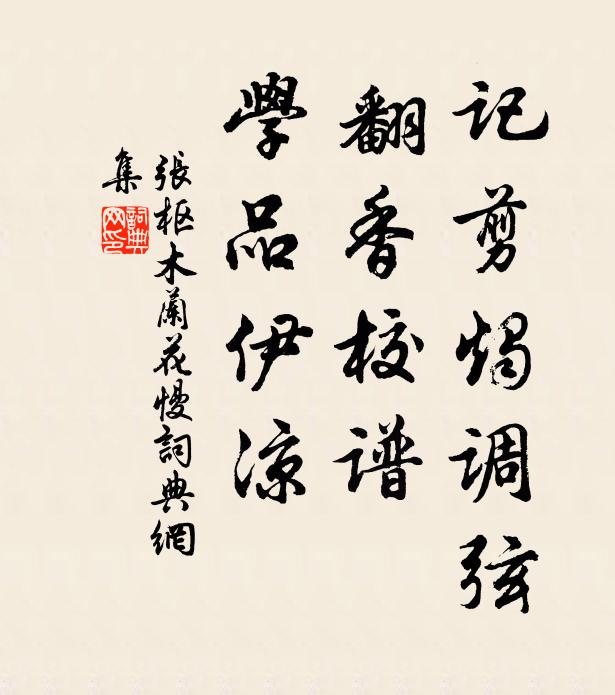 记剪烛调弦
翻香校谱
學品伊凉
張枢木蘭花慢詞典網
集
詞典
网印